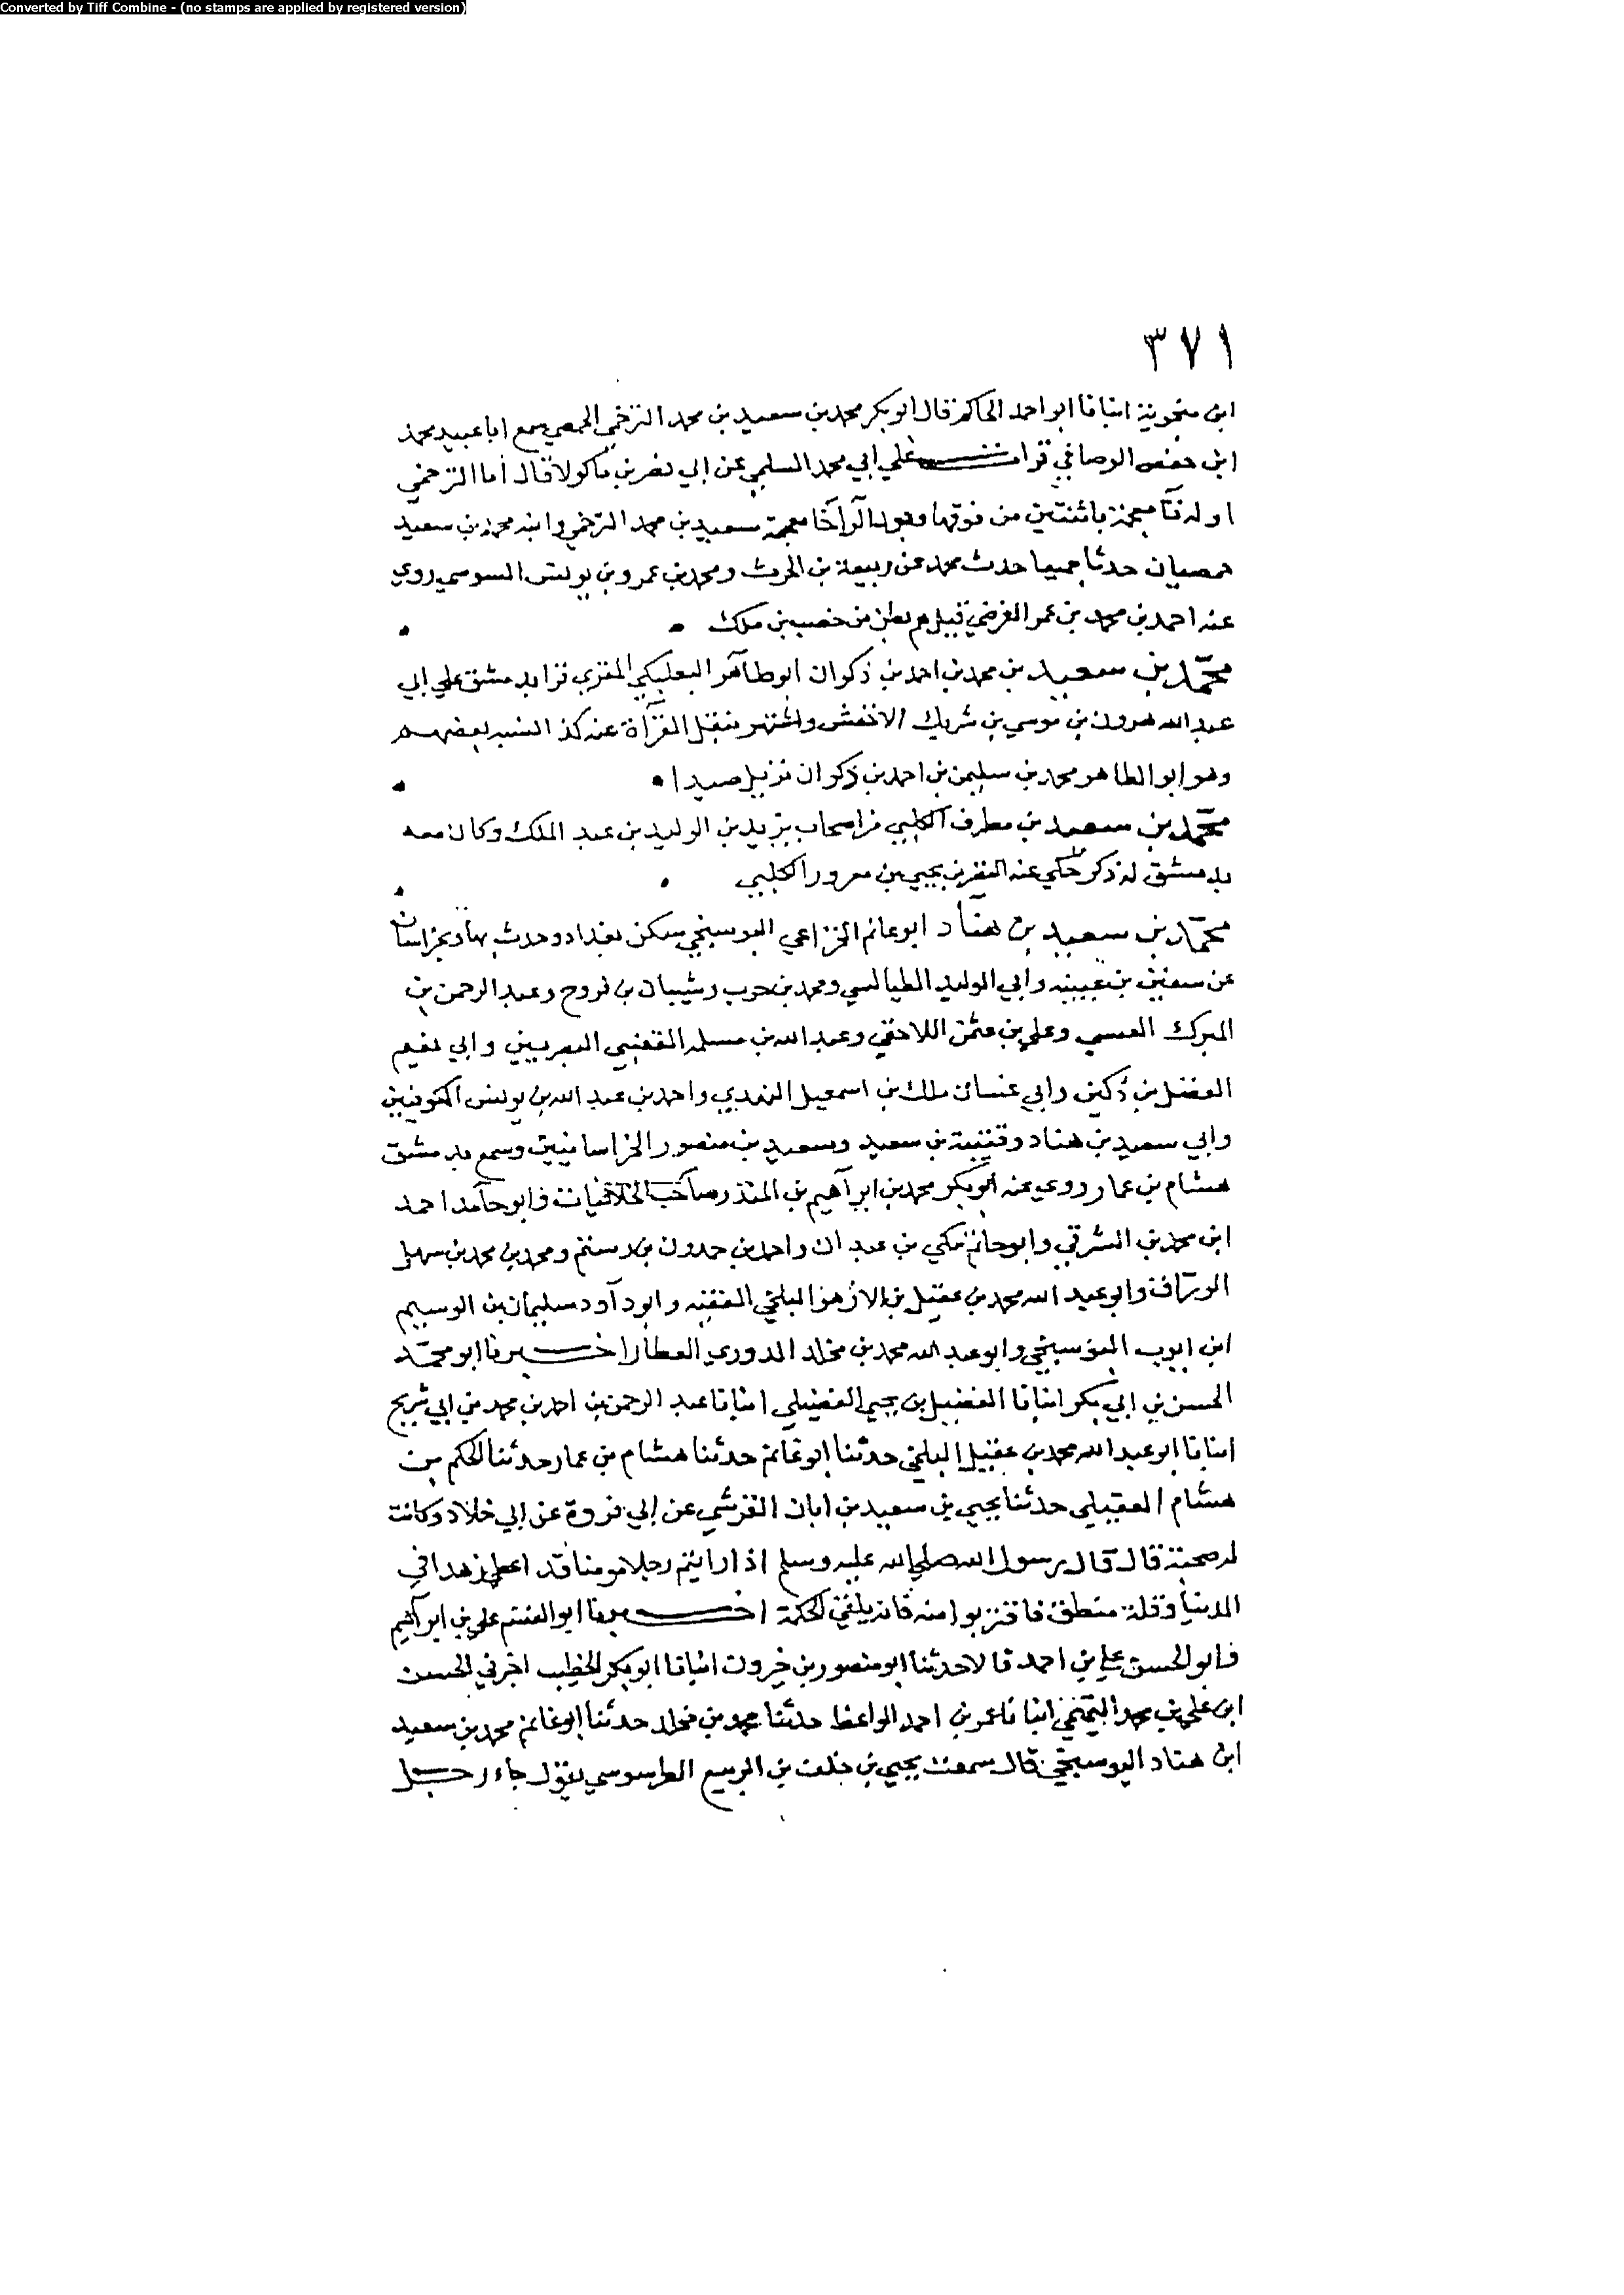 Converted by Tiff Combine - (no stamps are applied by registered version)
٣٧١
ابن منجويه انبانا ابو احمد الحاكم قال ابو بكر محمد بن سعيد بن محمد الترخمي الحمصي سمع ابا عبيد محمد
ابن حفص الوصافي قرات علي ابي محمد السلمي عن ابي نصر بن ماكولا قال اما الترخمي
اوله تآ معجمة باثنتين من فوقها وبعد الرآ خا معجمة سعيد بن محمد الترخمي وابنه محمد بن سعيد
حمصيان حدثا جميعا حدث محمد عن ربيعة بن الحرث ومحمد بن عمرو بن يونس السوسي روي
عنه احمد بن محمد بن عمر الفرضي قبيل هم بطن من حصب بن ملك
محمد بن سعيد بن محمد بن احمد بن ذكوان ابو طاهر البعلبكي المقري قرا بدمشق علي ابي
عبد الله هرون بن موسي بن شريك الاخفش واشتهر بنقل القرآة عنه كذا نسبه بعضهم
وهو ابو الطاهر محمد بن سليمن بن احمد بن ذكوان نزيل صيدا
محمد بن سعيد بن مطرف الكلبي من اصحاب يزيد بن الوليد بن عبد الملك وكان معه
بدمشق له ذكر حكي عنه النضر بن يحيي بن معرور الكلبي
محمد بن سعيد بن هناد ابو غانم الخزاعي البوسنجي سكن بغداد وحدث بها وبخراسان
عن سفين بن عيينه وابي الوليد الطيالسي ومحمد بن حرب وشيبان بن فروح وعبد الرحمن بن
المبرك العيسي وعلي بن عثمن اللاحقي وعبد الله بن مسلمه القعنبي البصريين وابي نعيم
الفضل بن دكين وابي غسان ملك بن اسمعيل النهدي واحمد بن عبد الله بن يونس الكوفيين
وابي سعيد بن هناد وقتيبة بن سعيد وسعيد بن منصور الخراسانيين وسمع بدمشق
هشام بن عمار روي عنه ابو بكر محمد بن ابراهيم بن المنذر صاحب الخلافيات وابو حامد احمد
ابن محمد بن الشرقي وابو حاتم مكي بن عبدان واحمد بن حمدون بن رستم ومحمد بن محمد بن سهل
الوراق وابو عبد الله محمد بن عقيل بن الازهر البلخي الفقيه وابو داود سليمان بن الوسيم
ابن ايوب البوسنجي وابو عبد الله محمد بن مخلد الدوري العطار اخبرنا ابو محمد
الحسن بن ابي بكر انبانا الفضيل بن يحيي الفضيلي انبانا عبد الرحمن بن احمد بن محمد بن ابي شريح
انبانا ابو عبد الله محمد بن عقيل البلخي حدثنا ابو غانم حدثنا هشام بن عمار حدثنا الحكم بن
هشام العقيلي حدثنا يحيي بن سعيد بن ابان القرشي عن ابي فروة عن ابي خلاد وكانت
له صحبة قال قال رسول الله صلي الله عليه وسلم اذا رايتم رجلا مومنا قد اعطي زهدا في
الدنيا وقلة منطق فاقتربوا منه فانه يلقي الحكمة اخبرنا ابو القسم علي بن ابراهيم
وابو الحسن علي بن احمد قالا حدثنا ابو منصور بن خيرون انبانا ابو بكر الخطيب اخبرني الحسن
ابن علي بن محمد التميمي انبانا عمر بن احمد الواعظ حدثنا محمد بن مخلد حدثنا ابو غانم محمد بن سعيد
ابن هناد البوسنجي قال سمعت يحيي بن خلف بن الربيع الطرسوسي يقول جاء رجل